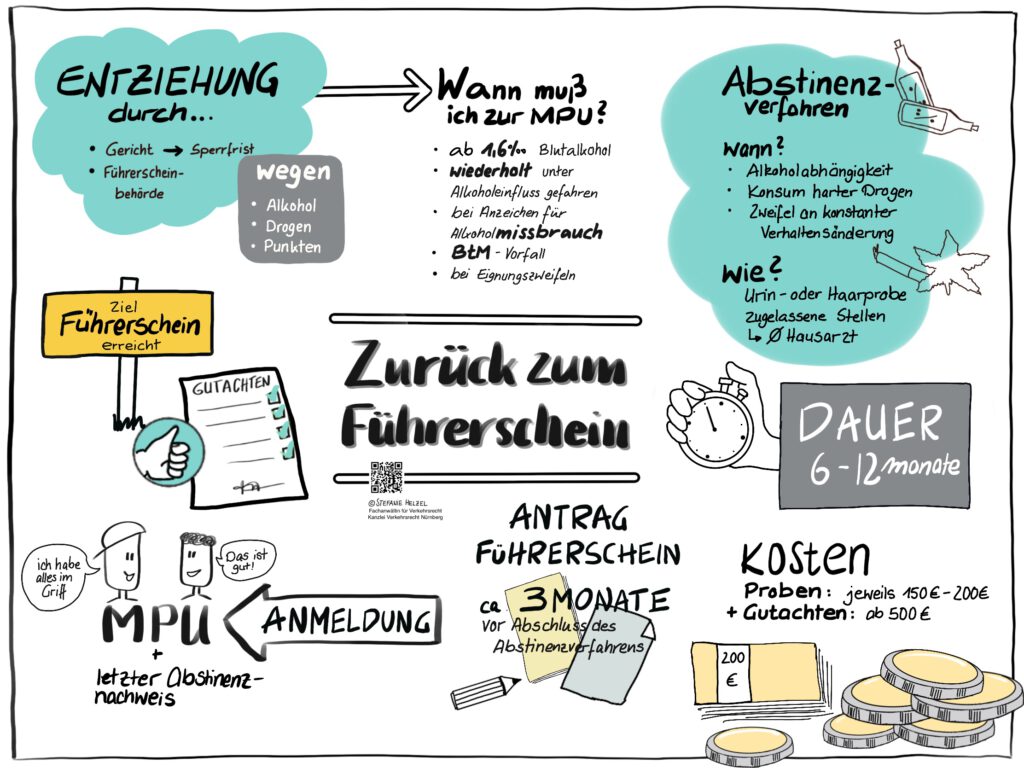 ENTZIEHUNG
durch...
• Gericht → Sperrfrist
• Führerschein-
behörde
wegen
• Alkohol
• Drogen
• Punkten
Wann muß
ich zur MPU?
• ab 1,6‰ Blutalkohol
• wiederholt unter
Alkoholeinfluss gefahren
• bei Anzeichen für
Alkoholmissbrauch
• BtM - Vorfall
• bei Eignungszweifeln
Abstinenz-
verfahren
wann?
• Alkoholabhängigkeit
• Konsum harter Drogen
• Zweifel an konstanter
Verhaltensänderung
Wie?
Urin- oder Haarprobe
zugelassene Stellen
↳ Ø Hausarzt
Ziel
Führerschein
erreicht
GUTACHTEN
Zurück zum
Führerschein
© STEFANIE HELZEL
Fachanwältin für Verkehrsrecht
Kanzlei Verkehrsrecht Nürnberg
DAUER
6-12 Monate
ANTRAG
FÜHRERSCHEIN
ca. 3 MONATE
vor Abschluss des
Abstinenzverfahrens
Kosten
Proben: jeweils 150€-200€
+ Gutachten: ab 500€
200
€
ich habe
alles im
Griff
Das ist
gut!
MPU
+
letzter Abstinenz-
nachweis
ANMELDUNG